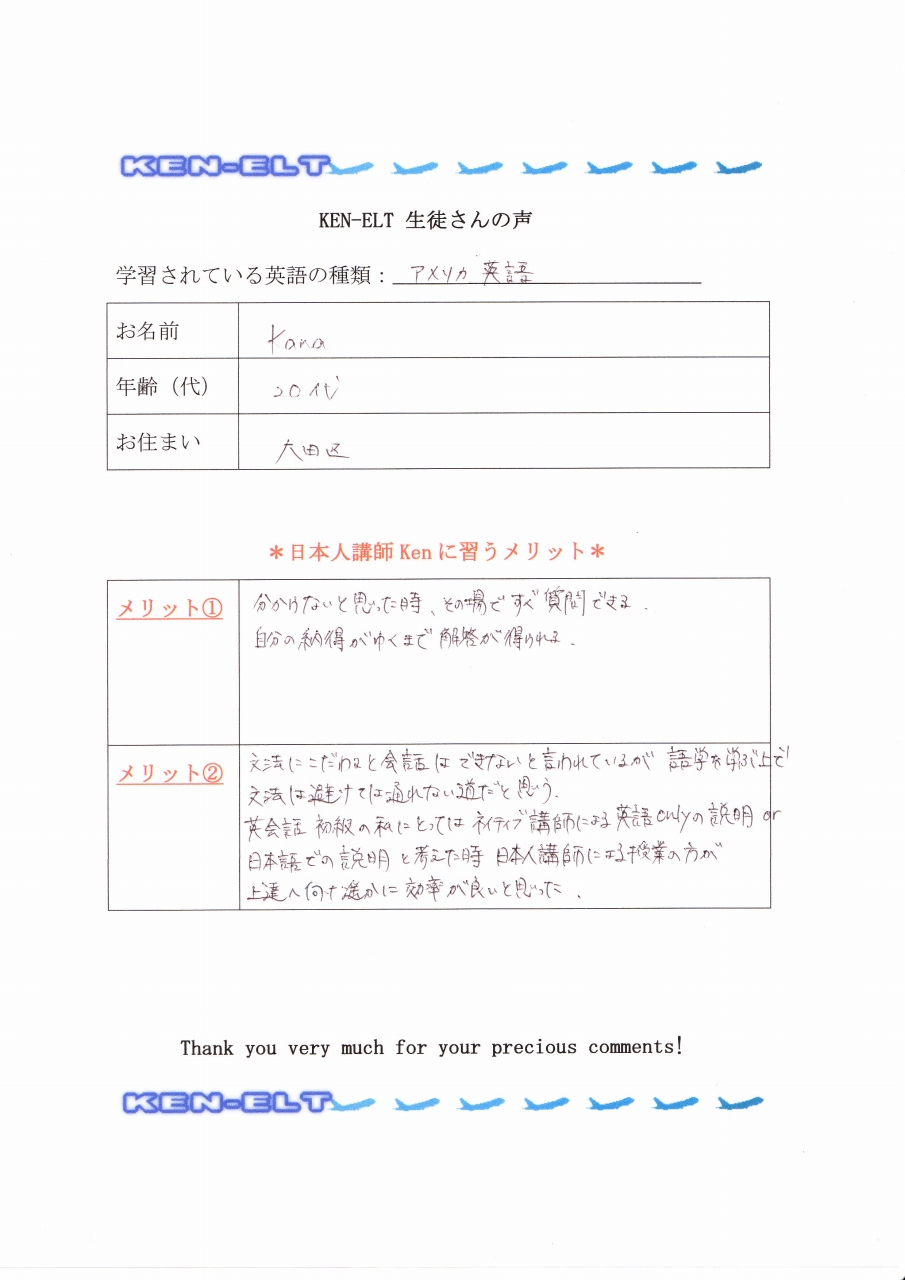 KEN-ELT
KEN-ELT 生徒さんの声
学習されている英語の種類： アメリカ 英語
お名前 Kana
年齢（代） 20代
お住まい 大田区
＊日本人講師 Ken に習うメリット＊
メリット① 分かけないと思った時、その場で すぐ 質問できる．
自分の納得がゆくまで 解答が得られる．
メリット② 文法にこだわると会話はできないと言われているが 語学を学ぶ上で
文法は避けては通れない道だと思う．
英会話 初級の私にとっては ネイティブ講師による英語onlyの説明 or
日本語での説明 と考えた時 日本人講師による授業の方が
上達へ向け遥かに効率が良いと思った．
Thank you very much for your precious comments!
KEN-ELT